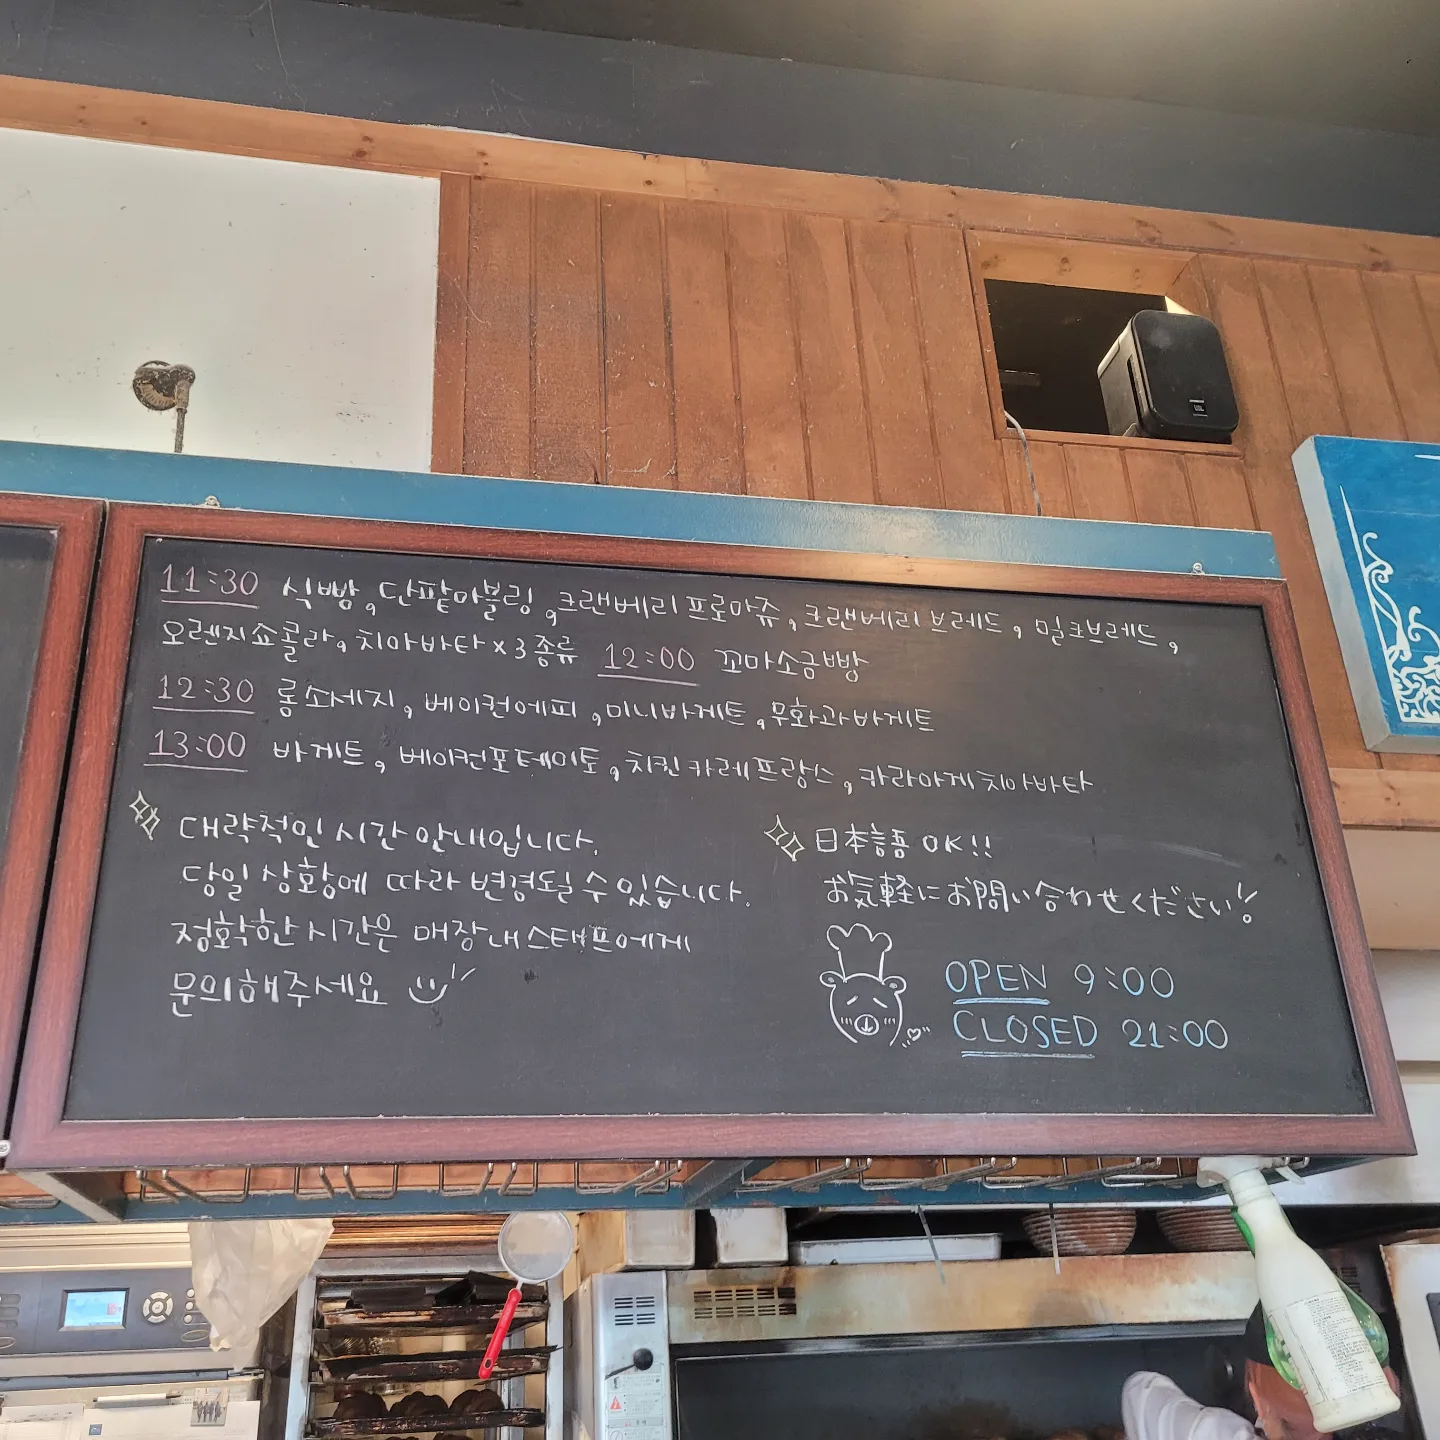 11:30 식빵, 단팥마블링, 크랜베리 프로마쥬, 크랜베리 브레드, 밀크브레드,
오렌지쇼콜라, 치아바타 x 3종류 12:00 꼬마소금빵
12:30 롱소세지, 베이컨에피, 미니바게트, 무화과바게트
13:00 바게트, 베이컨포테이토, 치킨카레프랑스, 카라아게치아바타
대략적인 시간 안내입니다.
당일 상황에 따라 변경될 수 있습니다.
정확한 시간은 매장 내 스태프에게
문의해주세요
日本語 OK!!
お気軽にお問い合わせください!
OPEN 9:00
CLOSED 21:00
JBL